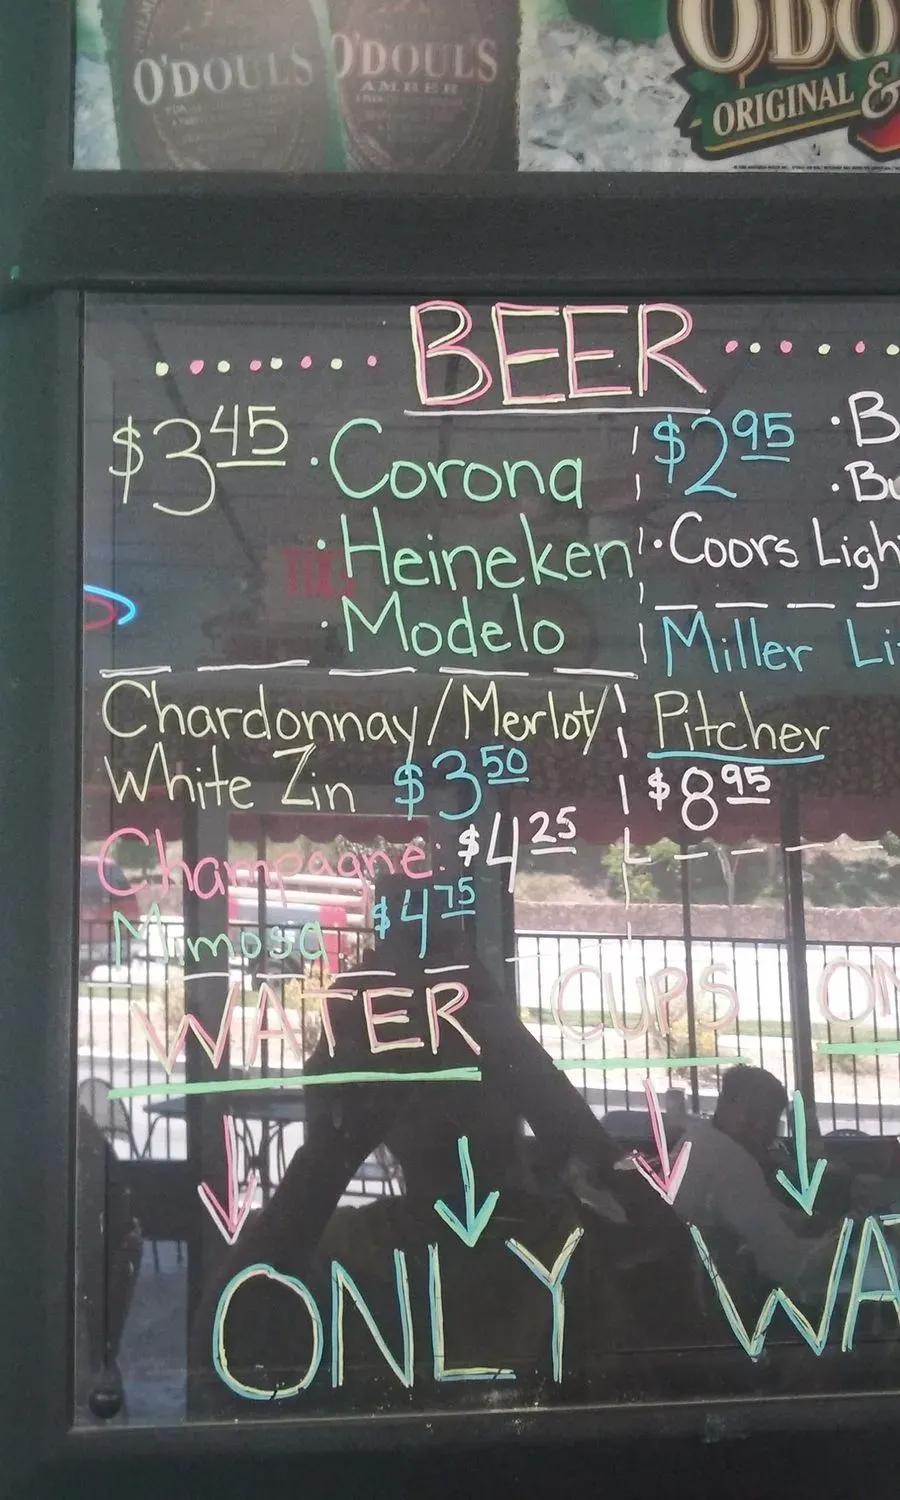 O'DOULS
O'DOULS
AMBER
ORIGINAL &
BEER
$3.45
· Corona
· Heineken
· Modelo
$2.95
· Coors Ligh
Miller Li
Chardonnay/Merlot/
White Zin $3.50
Pitcher
$8.95
Champagne: $4.25
Mimosa: $4.75
WATER CUPS ON
ONLY WA